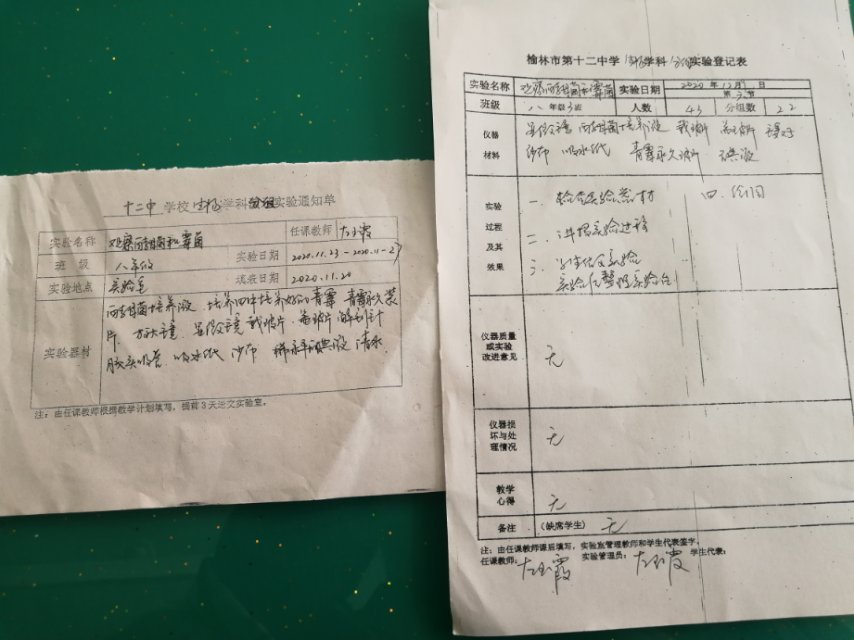 十二中 学校 生物 学科 实验通知单
实验名称 观察酵母菌和霉菌 任课教师 左玉霞
班 级 八年级 实验日期 2020.11.23-2020.11-27
实验地点 实验室 填表日期 2020.11.20
实验器材
酵母菌培养液 培养皿中培养好的青霉 青霉永久装
片 放大镜 显微镜 载玻片 盖玻片 解剖针
胶头吸管 吸水纸 纱布 稀释碘液 清水
注:由任课教师根据教学计划填写,提前3天送交实验室。
榆林市第十二中学 生物 学科 实验登记表
实验名称 观察酵母菌和霉菌 实验日期 2020 年 12月 日
第 节
班级 八年级3班 人数 43 分组数 22
仪器
材料
显微镜 酵母菌培养液 载玻片 盖玻片 镊子
纱布 吸水纸 青霉永久装片 碘液
实验
过程
及其
效果
一、检查实验器材 四、绘图
二、讲授实验过程
三、学生做实验
实验后整理实验台
仪器质量
或实验
改进意见
无
仪器损
坏与处
理情况
无
教学
心得
无
备注 (缺席学生) 无
注:由任课教师课后填写,实验室管理教师和学生代表签字。
任课教师: 左玉霞 实验管理员: 左玉霞 学生代表: